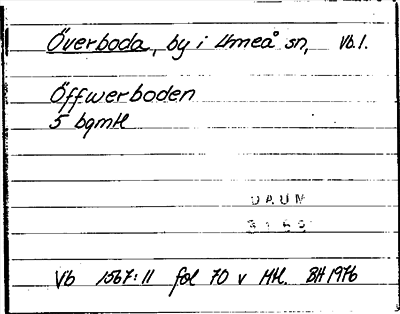 Överboda, by i Umeå sn, Vb.l.
Öffwerboden
5 bqmtl
DAUM
3163
Vb 1567:11 fol 70 v Mtl. BH 1976